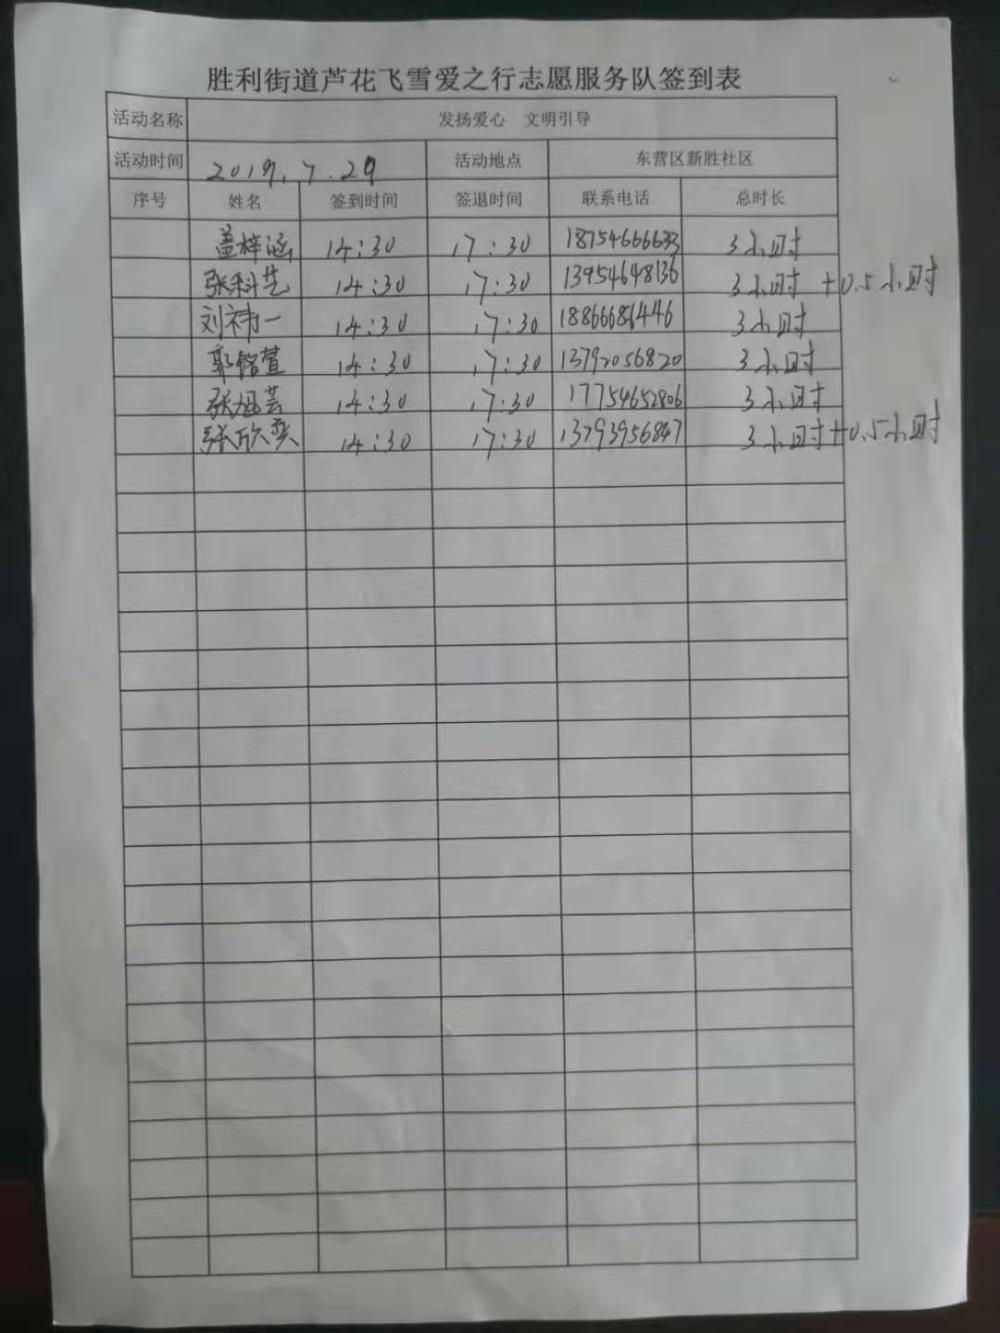 胜利街道芦花飞雪爱之行志愿服务队签到表
活动名称 发扬爱心 文明引导
活动时间 2019.7.29 活动地点 东营区新胜社区
序号 姓名 签到时间 签退时间 联系电话 总时长
盖梓涵 14:30 17:30 18754666633 3小时
张科艺 14:30 17:30 13954648136 3小时+0.5小时
刘祎一 14:30 17:30 3小时
郭铭萱 14:30 17:30 13792056820 3小时
张旭芸 14:30 17:30 17754652806 3小时
张欣奕 14:30 17:30 13793956847 3小时+0.5小时